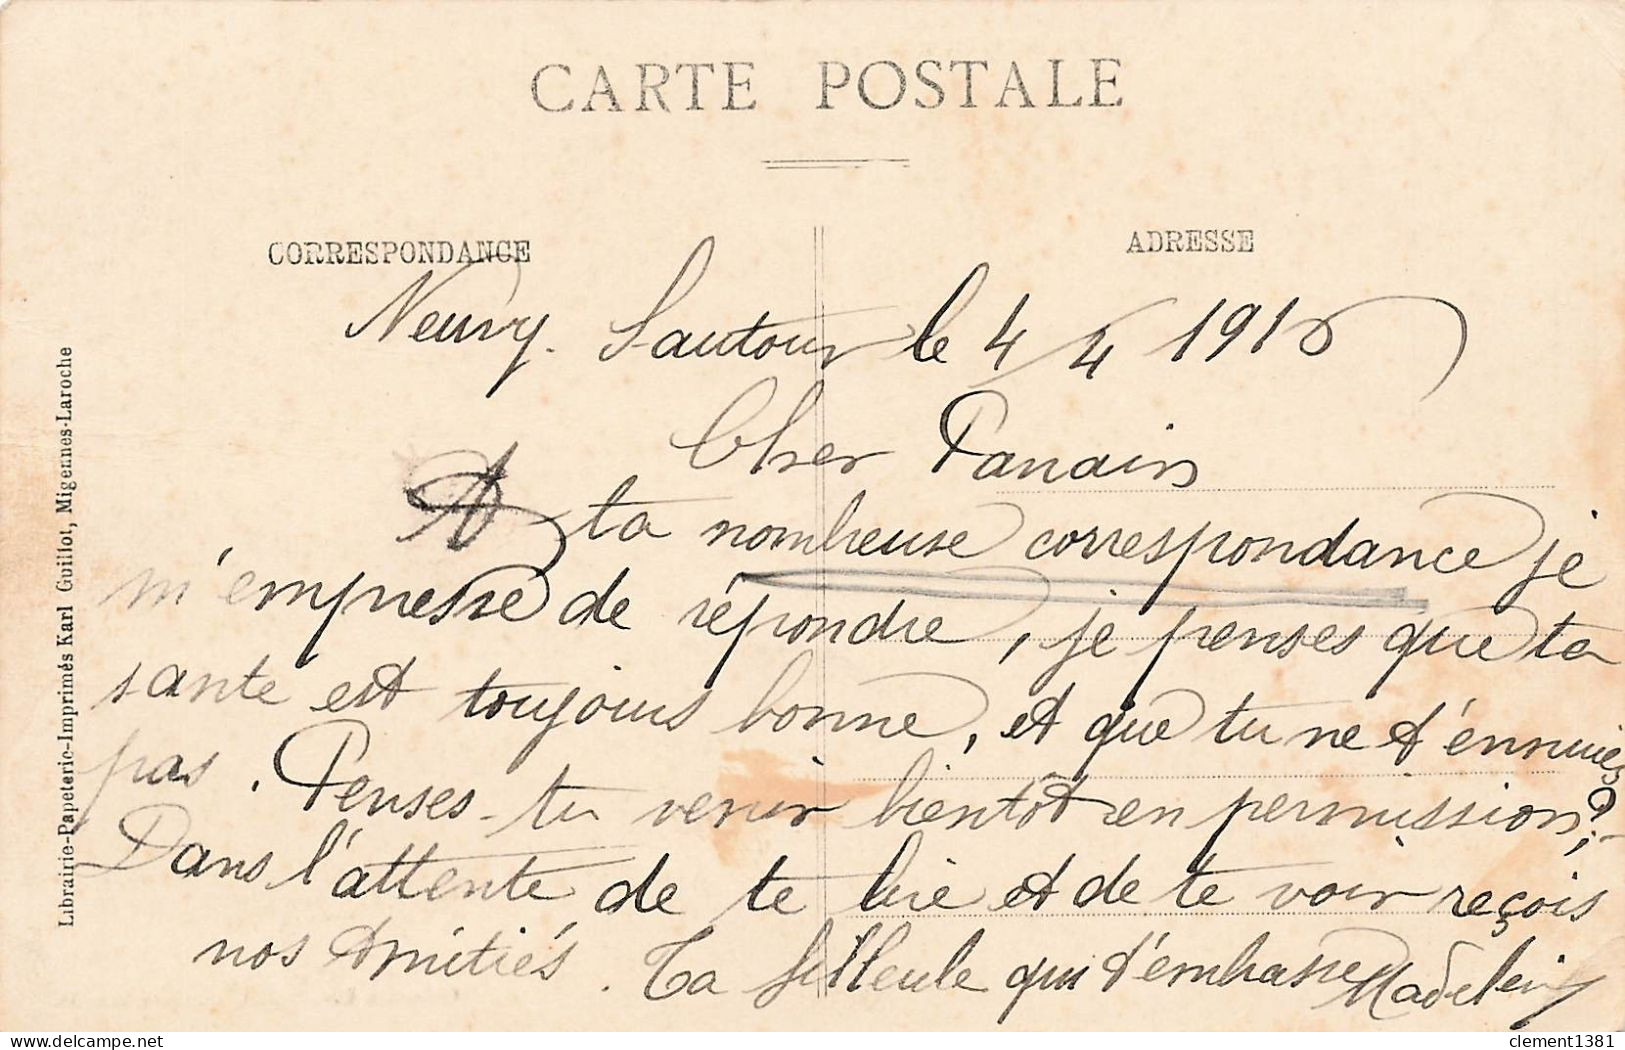 CARTE POSTALE
CORRESPONDANCE
ADRESSE
Neuvy-Sautour le 4/4 1916
Cher Parrain
A ta nombreuse correspondance je
m'empresse de répondre, je penses que ta
sante est toujours bonne, et que tu ne t'ennuies
pas. Penses-tu venir bientôt en permission?
Dans l'attente de te lire et de te voir reçois
nos Amitiés. Ta filleule qui t'embrasse Madeleine
Librairie-Papeterie-Imprimés Karl Guillot, Migennes-Laroche
delcampe.net
clement1381